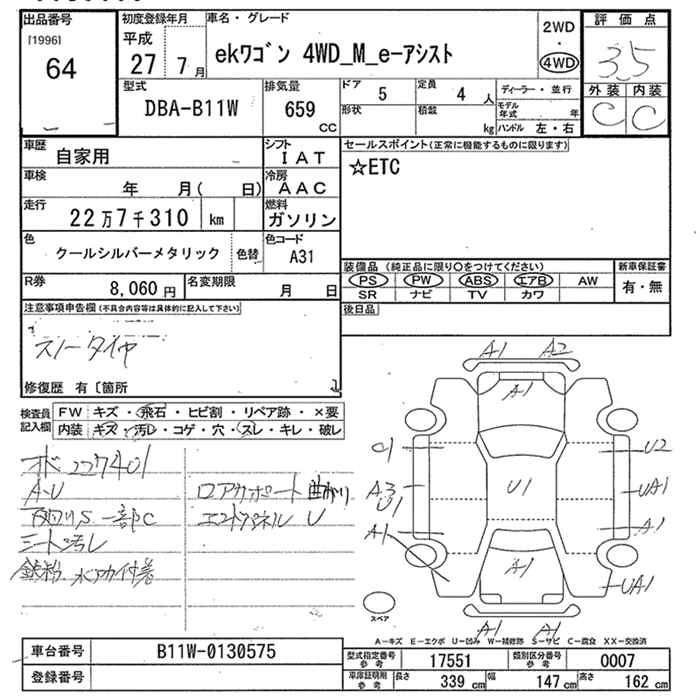 出品番号
[1996]
64
初度登録年月
平成
27 7 月
車名・グレード
ekワゴン 4WD_M_e-アシスト
2WD
・
4WD
評価点
3.5
外装 内装
C C
型式
DBA-B11W
排気量
659 CC
ドア 5
定員 4 人
形状
積載 kg
ディーラー・並行
モデル年式 年
ハンドル 左・右
車歴
自家用
シフト
IAT
車検
年 月( 日)
冷房
AAC
走行
22万7千310 km
燃料
ガソリン
色
クールシルバーメタリック
色替
色コード
A31
R券
8,060 円
名変期限
月 日
セールスポイント(正常に機能するものに限ります)
☆ETC
装備品 (純正品に限り○をつけてください)
PS PW ABS エアB AW
SR ナビ TV カワ
新車保証書
有・無
後日品
注意事項申告欄(不具合内容等は具体的に記入して下さい)
スノータイヤ
修復歴 有〔箇所
検査員記入欄
FW キズ・飛石・ヒビ割・リペア跡・×要
内装 キズ・汚レ・コゲ・穴・スレ・キレ・破レ
ボ 227401
A・U
下回りS 一部C
シート汚レ
鉄粉、水アカ付着
ロアサポート曲がり
エンドパネル U
A1 A2
A1
C1 U2
A3 U1 U1 UA1
A1 A1
A1 UA1
A1 A1
スペア
A-キズ E-エクボ U-凹み W-補修跡 S-サビ C-腐食 XX-交換済
車台番号
B11W-0130575
登録番号
型式指定番号 参考
17551
類別区分番号 参考
0007
車庫証明用 参考
長さ 339 cm
幅 147 cm
高さ 162 cm